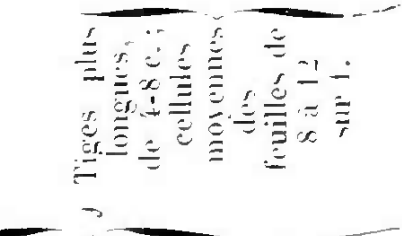 Tiges plus
longues,
de 4-8 c. ;
cellules
moyennes
des
feuilles de
8 à 12
sur 1.